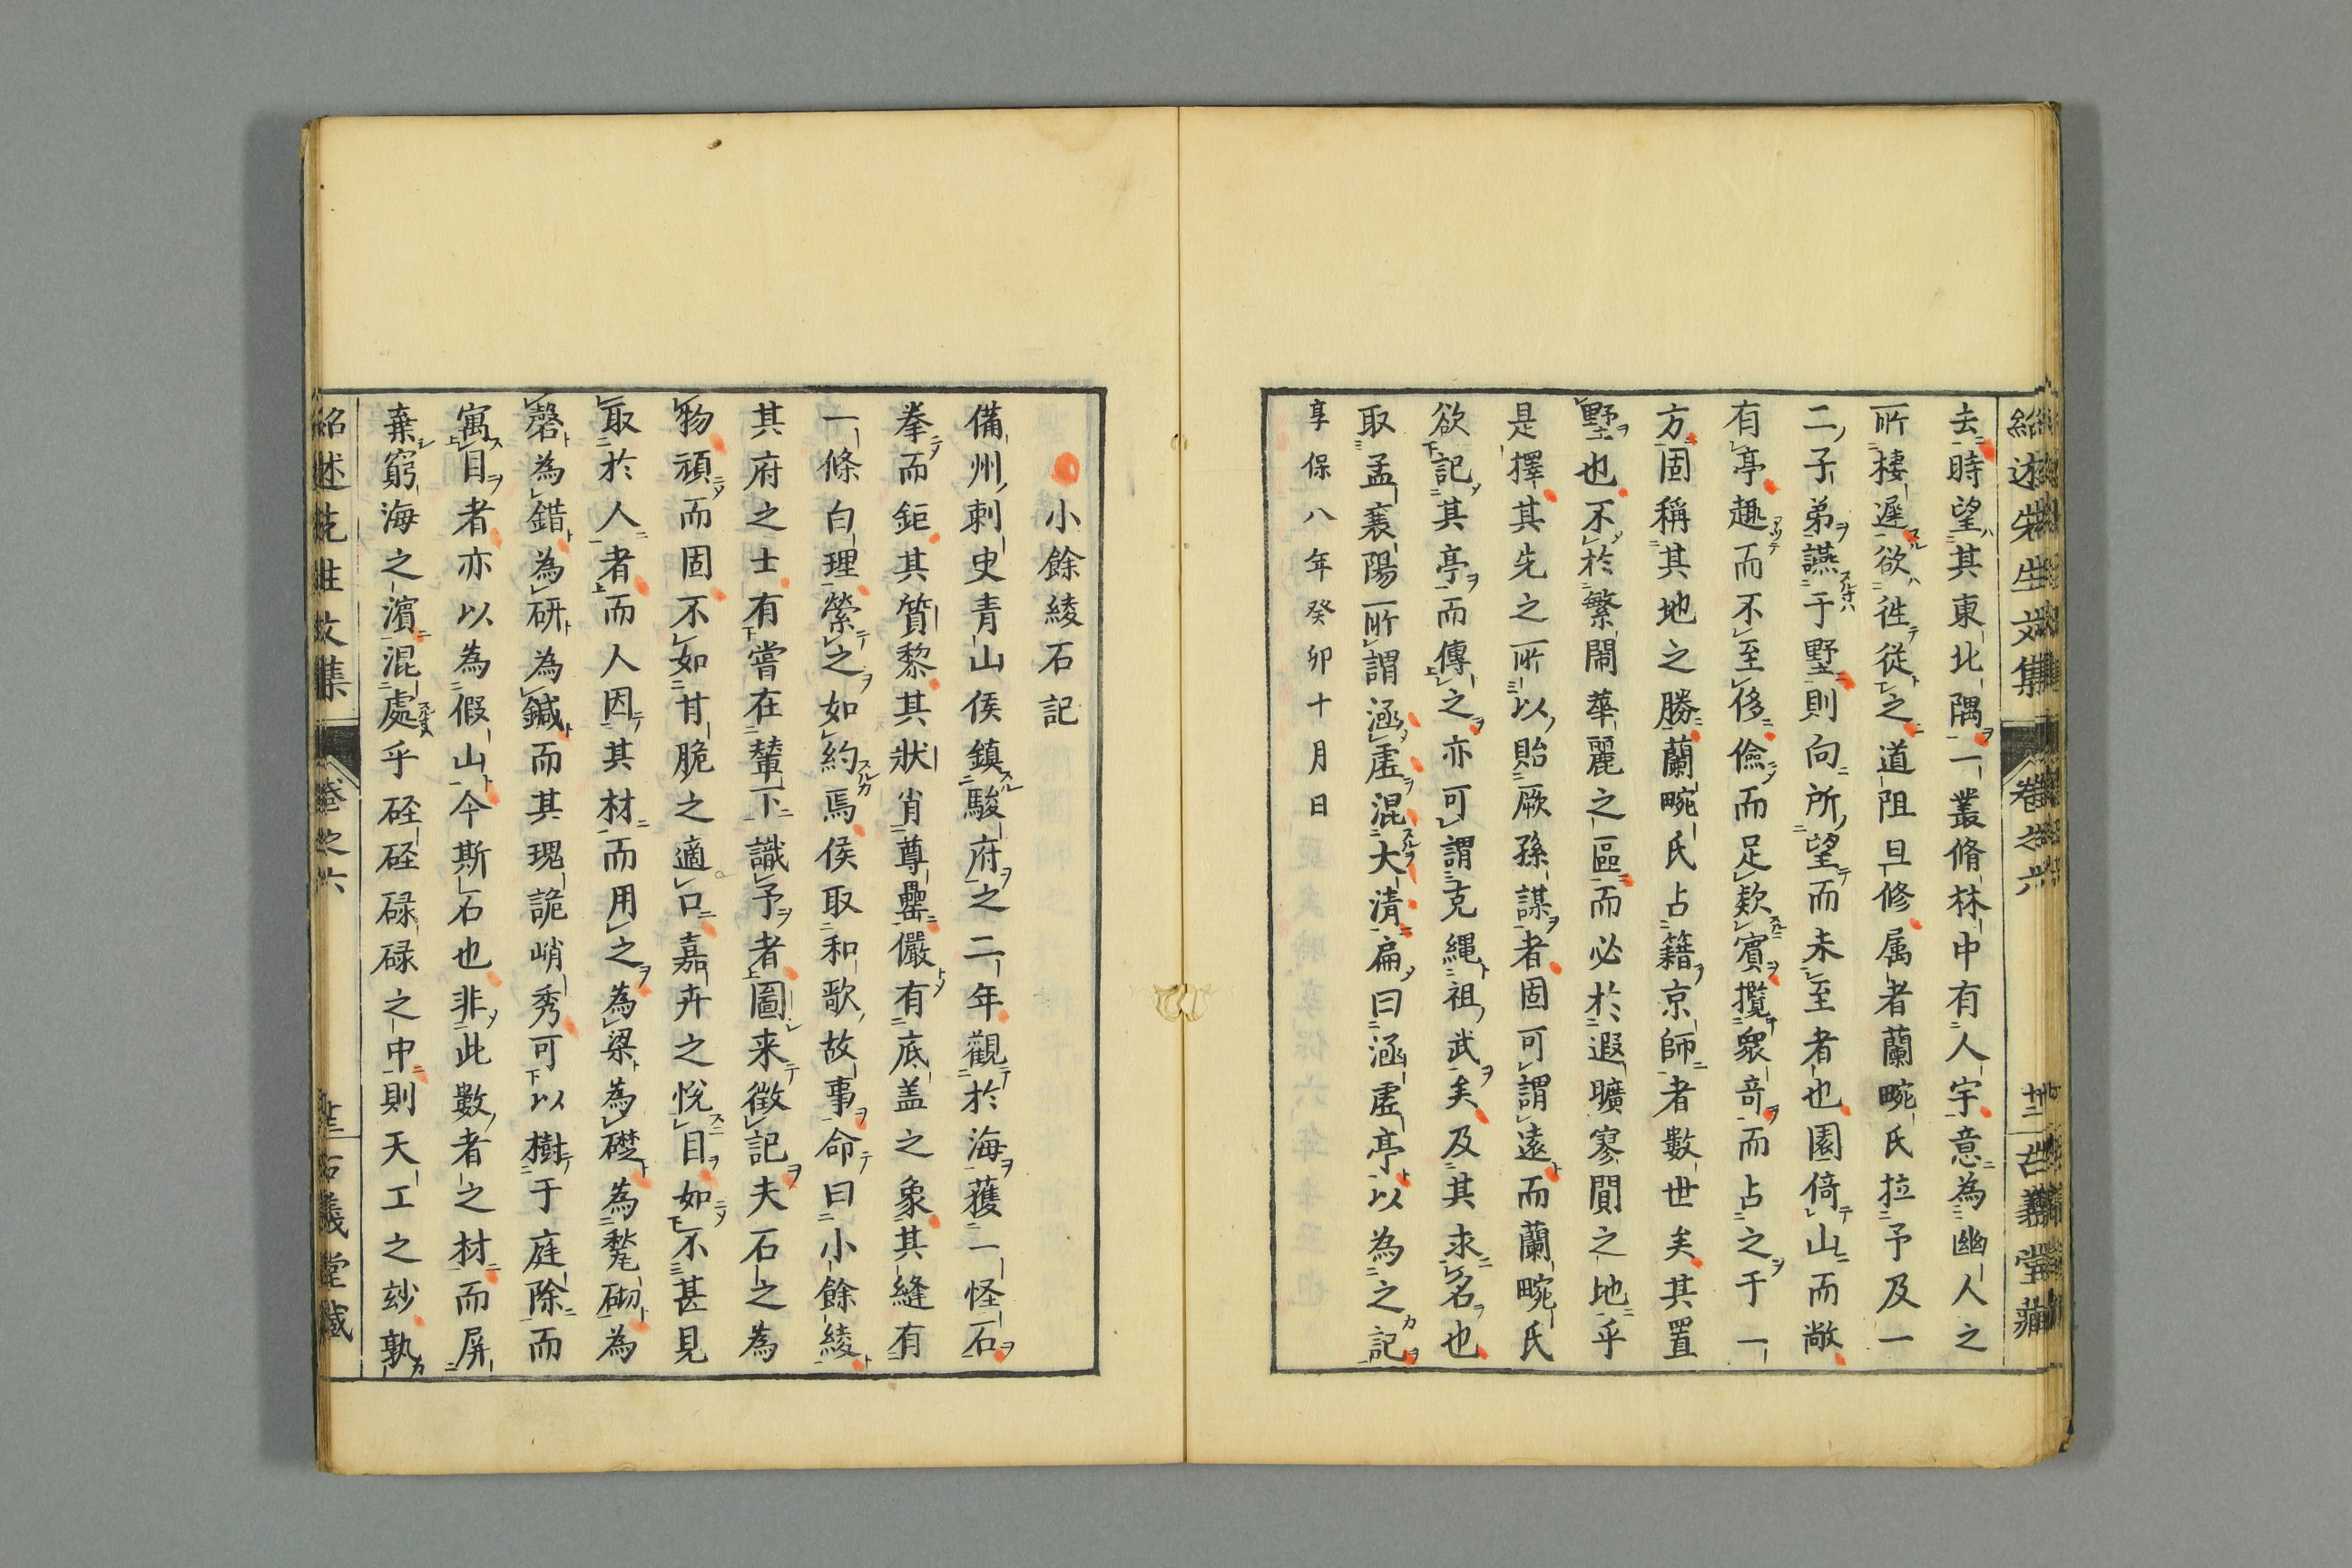 紹述先生文集 卷之六 廿二 古義堂藏
去時望其東北隅一叢脩林中有人宇意為幽人之
所棲遲欲徃從之道阻且修属者蘭畹氏拉予及一
二子弟讌于墅則向所望而未至者也園倚山而敞
有亭趣而不至侈儉而足欵賓攬衆竒而占之于一
方固稱其地之勝蘭畹氏占籍京師者數世矣其置
墅也不於繁鬧華麗之區而必於遐曠寥閴之地乎
是擇其先之所以貽厥孫謀者固可謂遠而蘭畹氏
欲記其亭而傳之亦可謂克縄祖武矣及其求名也
取孟襄陽所謂涵虚混大清扁曰涵虚亭以為之記
享保八年癸卯十月日
小餘綾石記
備州刺史青山侯鎮駿府之二年觀於海獲一怪石
拳而鉅其質黎其状肖尊罍儼有底盖之象其縫有
一條白理縈之如約焉侯取和歌故事命曰小餘綾
其府之士有嘗在輦下識予者圖来徴記夫石之為
物頑而固不如甘脆之適口嘉卉之悅目如不甚見
取於人者而人因其材而用之為梁為礎為甃砌為
磬為錯為研為鍼而其瑰詭峭秀可以樹于庭除而
寓目者亦以為假山今斯石也非此數者之材而屏
棄窮海之濵混處乎硜硜碌碌之中則天工之玅孰
紹述先生文集 卷之六 古義堂藏